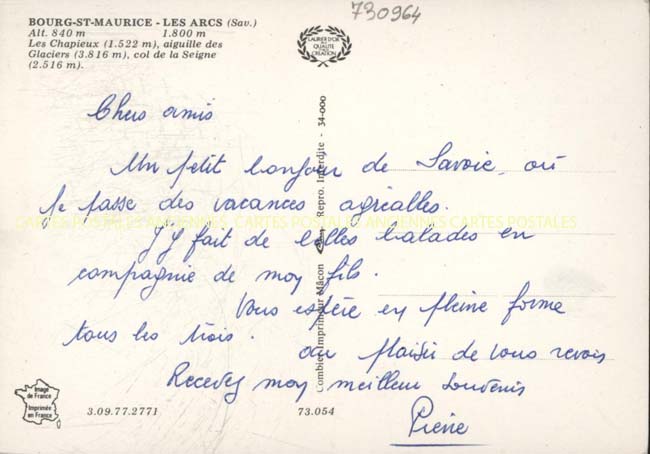 730964
BOURG-ST-MAURICE - LES ARCS (Sav.)
Alt. 840 m 1.800 m
Les Chapieux (1.522 m), aiguille des
Glaciers (3.816 m), col de la Seigne
(2.516 m).
LAURIER D'OR
DE LA
QUALITÉ
DE
CRÉATION
Chers amis
Un petit bonjour de Savoie, où
je passe des vacances agréables.
J'y fait de belles balades en
compagnie de mon fils.
Vous espère en pleine forme
tous les trois. au plaisir de vous revoir
Recevez mon meilleur souvenir
Pierre
Combier Imprimeur Mâcon Repro. Interdite - 34-000
CARTES POSTALES ANCIENNES CARTES POSTALES ANCIENNES CARTES POSTALES
Image
de France
Imprimée
en France
3.09.77.2771
73.054